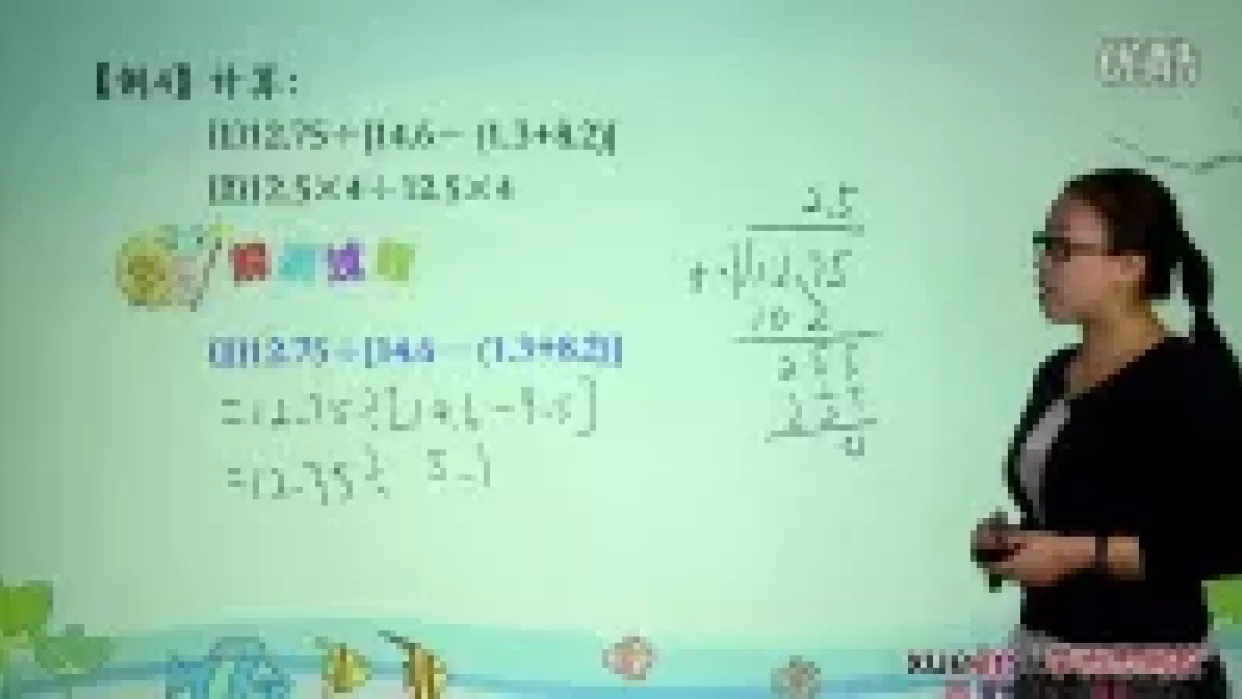 【例4】计算：
(1)12.75÷[14.6－(1.3+8.2)]
(2)12.5×4÷12.5×4
(1)12.75÷[14.6－(1.3+8.2)]
=12.75÷[14.6-9.5]
=12.75÷ 5.1
2.5
12.75
10 2
2 5 5
2 5 5
0
优酷